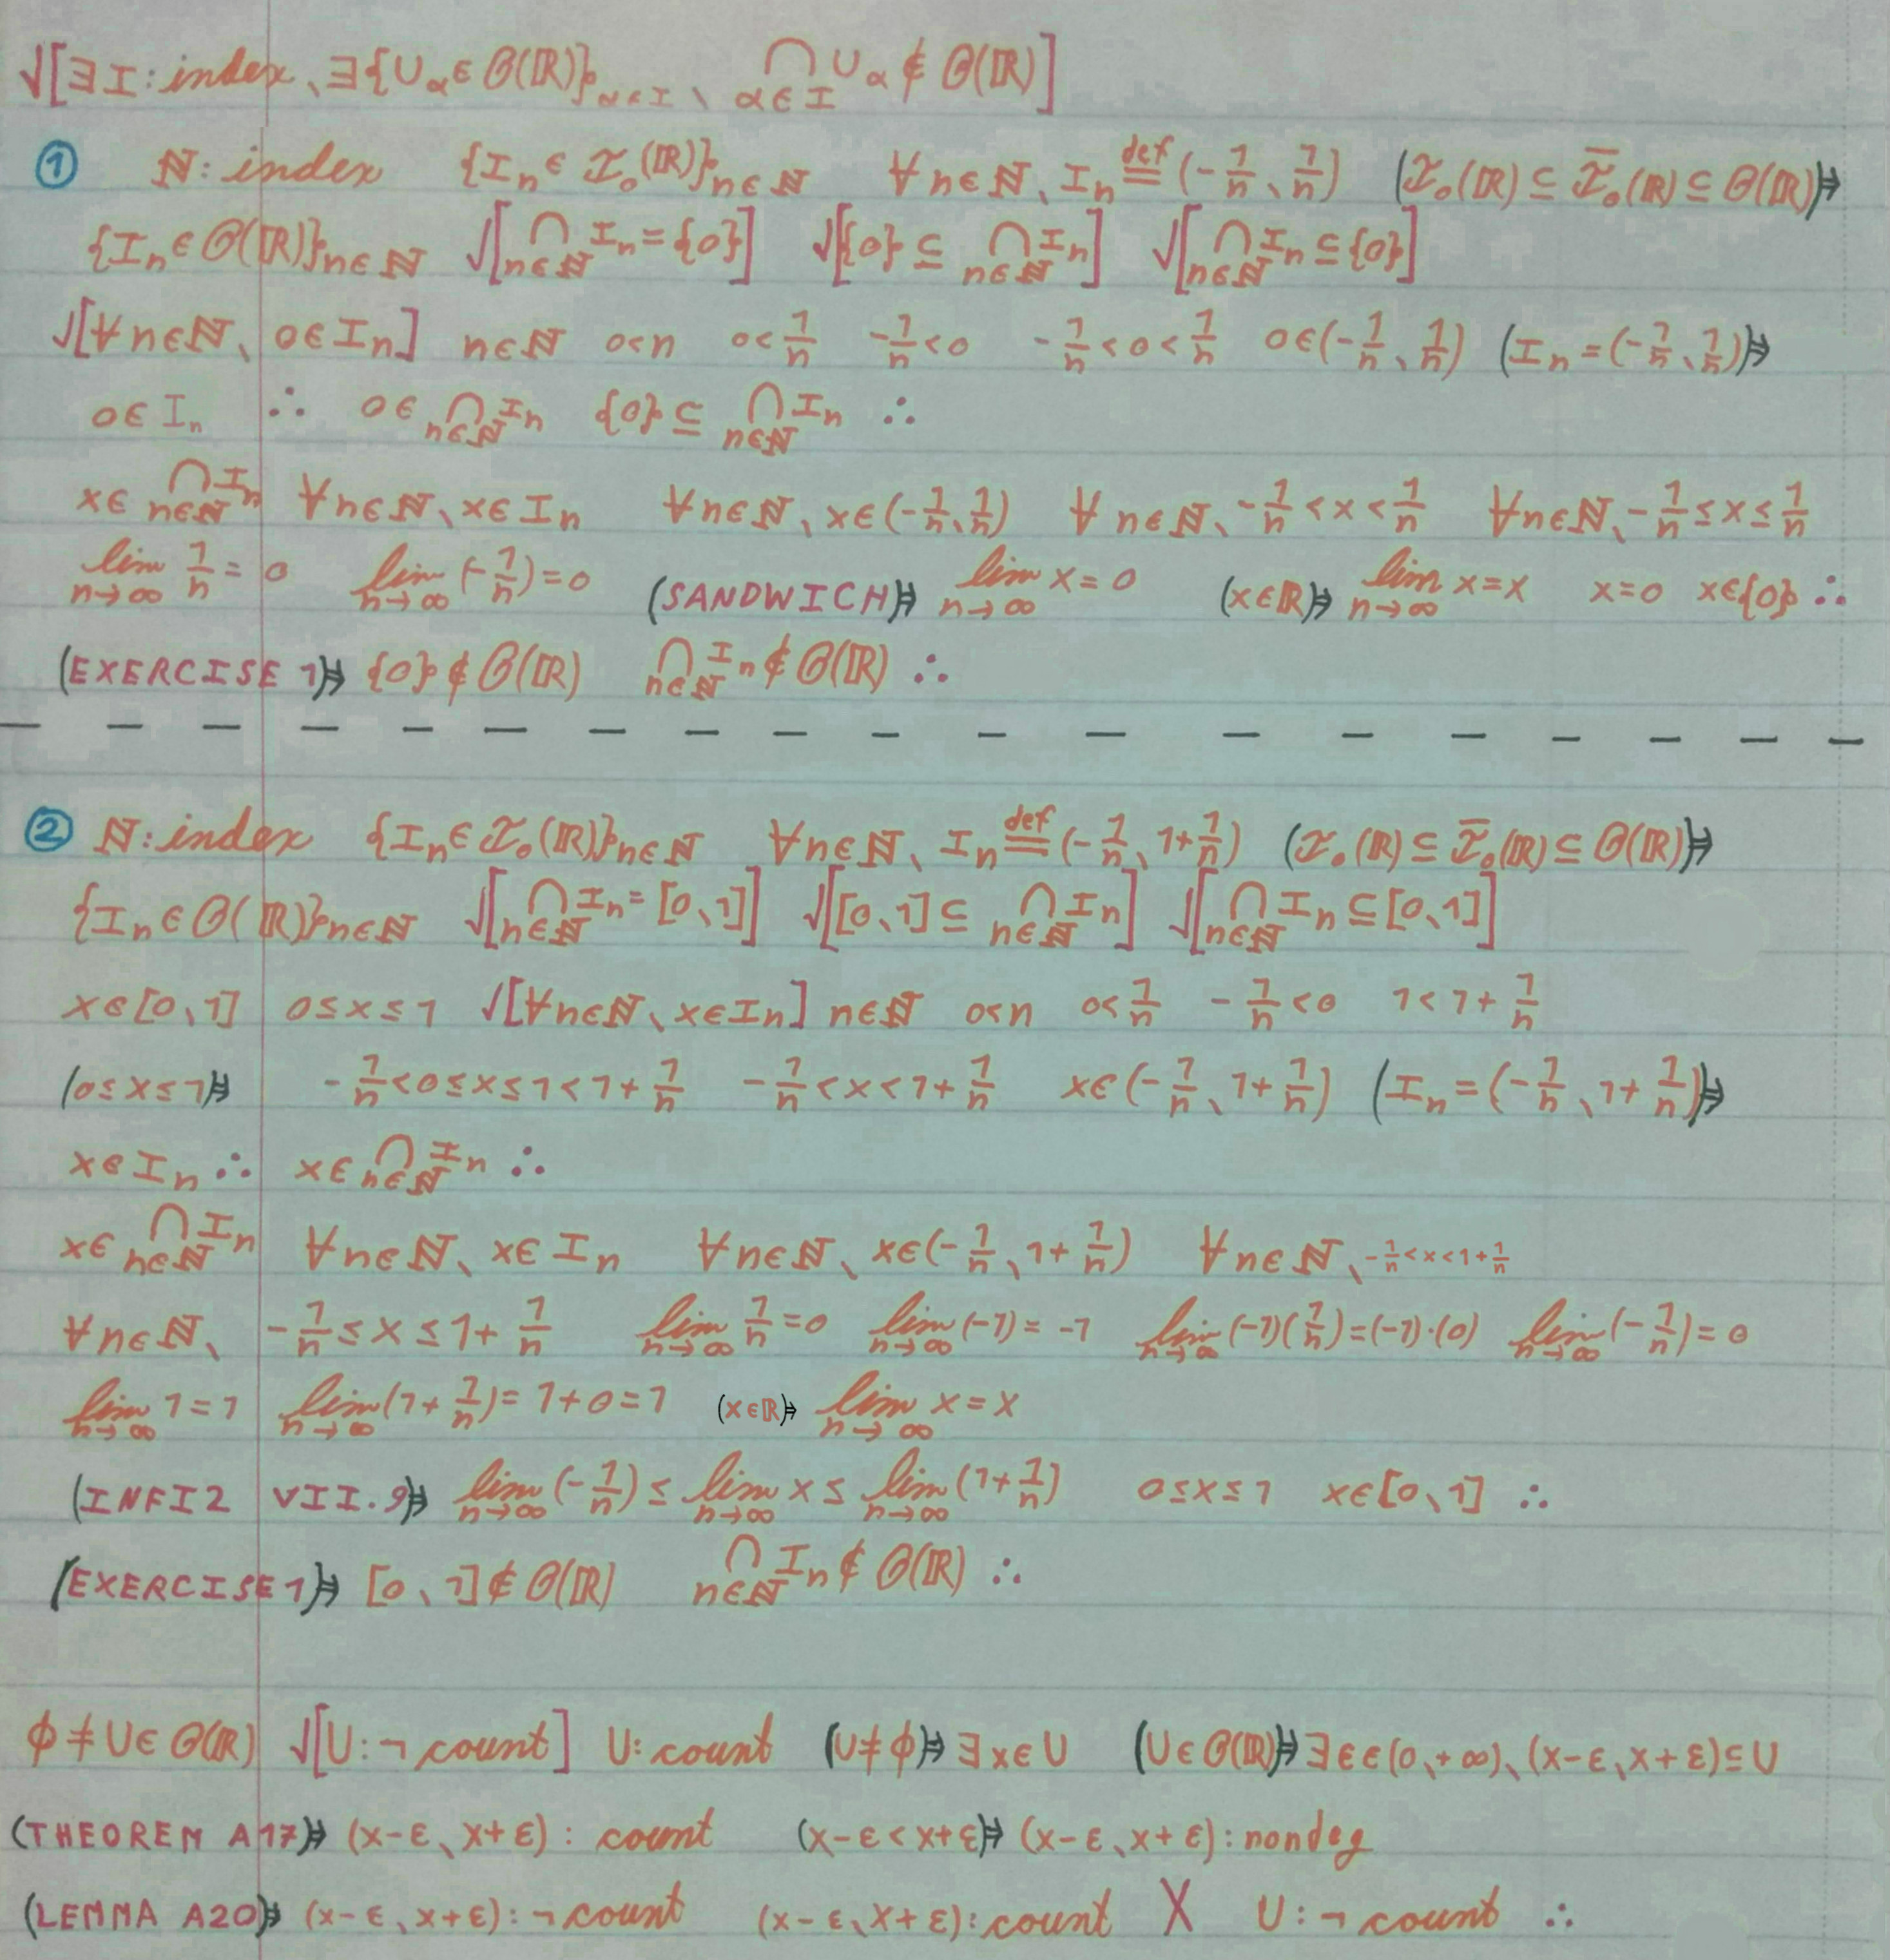 √[∃I: index、∃{Uα∈𝒪(ℝ)}α∈I、⋂α∈I Uα∉𝒪(ℝ)]
① ℕ: index {In∈ℐo(ℝ)}n∈ℕ ∀n∈ℕ、In ≝ (-1/n、1/n) (ℐo(ℝ)⊆ℐ̅o(ℝ)⊆𝒪(ℝ))⇒
{In∈𝒪(ℝ)}n∈ℕ √[⋂n∈ℕ In={0}] √[{0}⊆⋂n∈ℕ In] √[⋂n∈ℕ In⊆{0}]
√[∀n∈ℕ、0∈In] n∈ℕ 0<n 0<1/n -1/n<0 -1/n<0<1/n 0∈(-1/n、1/n) (In=(-1/n、1/n))⇒
0∈In ∴ 0∈⋂n∈ℕ In {0}⊆⋂n∈ℕ In ∴
x∈⋂n∈ℕ In ∀n∈ℕ、x∈In ∀n∈ℕ、x∈(-1/n、1/n) ∀n∈ℕ、-1/n<x<1/n ∀n∈ℕ、-1/n≤x≤1/n
lim n→∞ 1/n=0 lim n→∞ (-1/n)=0 (SANDWICH)⇒ lim n→∞ x=0 (x∈ℝ)⇒ lim n→∞ x=x x=0 x∈{0} ∴
(EXERCISE 1)⇒ {0}∉𝒪(ℝ) ⋂n∈ℕ In∉𝒪(ℝ) ∴
② ℕ: index {In∈ℐo(ℝ)}n∈ℕ ∀n∈ℕ、In ≝ (-1/n、1+1/n) (ℐo(ℝ)⊆ℐ̅o(ℝ)⊆𝒪(ℝ))⇒
{In∈𝒪(ℝ)}n∈ℕ √[⋂n∈ℕ In=[0、1]] √[[0、1]⊆⋂n∈ℕ In] √[⋂n∈ℕ In⊆[0、1]]
x∈[0、1] 0≤x≤1 √[∀n∈ℕ、x∈In] n∈ℕ 0<n 0<1/n -1/n<0 1<1+1/n
(0≤x≤1)⇒ -1/n<0≤x≤1<1+1/n -1/n<x<1+1/n x∈(-1/n、1+1/n) (In=(-1/n、1+1/n))⇒
x∈In ∴ x∈⋂n∈ℕ In ∴
x∈⋂n∈ℕ In ∀n∈ℕ、x∈In ∀n∈ℕ、x∈(-1/n、1+1/n) ∀n∈ℕ、-1/n<x<1+1/n
∀n∈ℕ、-1/n≤x≤1+1/n lim n→∞ 1/n=0 lim n→∞ (-1)=-1 lim n→∞ (-1)(1/n)=(-1)·(0) lim n→∞ (-1/n)=0
lim n→∞ 1=1 lim n→∞ (1+1/n)=1+0=1 (x∈ℝ)⇒ lim n→∞ x=x
(INFI2 VII.9)⇒ lim n→∞ (-1/n)≤lim n→∞ x≤lim n→∞ (1+1/n) 0≤x≤1 x∈[0、1] ∴
(EXERCISE 1)⇒ [0、1]∉𝒪(ℝ) ⋂n∈ℕ In∉𝒪(ℝ) ∴
ϕ≠U∈𝒪(ℝ) √[U:¬count] U: count (U≠ϕ)⇒ ∃x∈U (U∈𝒪(ℝ))⇒ ∃ε∈(0、+∞)、(x-ε、x+ε)⊆U
(THEOREM A17)⇒ (x-ε、x+ε): count (x-ε<x+ε)⇒ (x-ε、x+ε): nondeg
(LEMMA A20)⇒ (x-ε、x+ε):¬count (x-ε、x+ε): count X U:¬count ∴